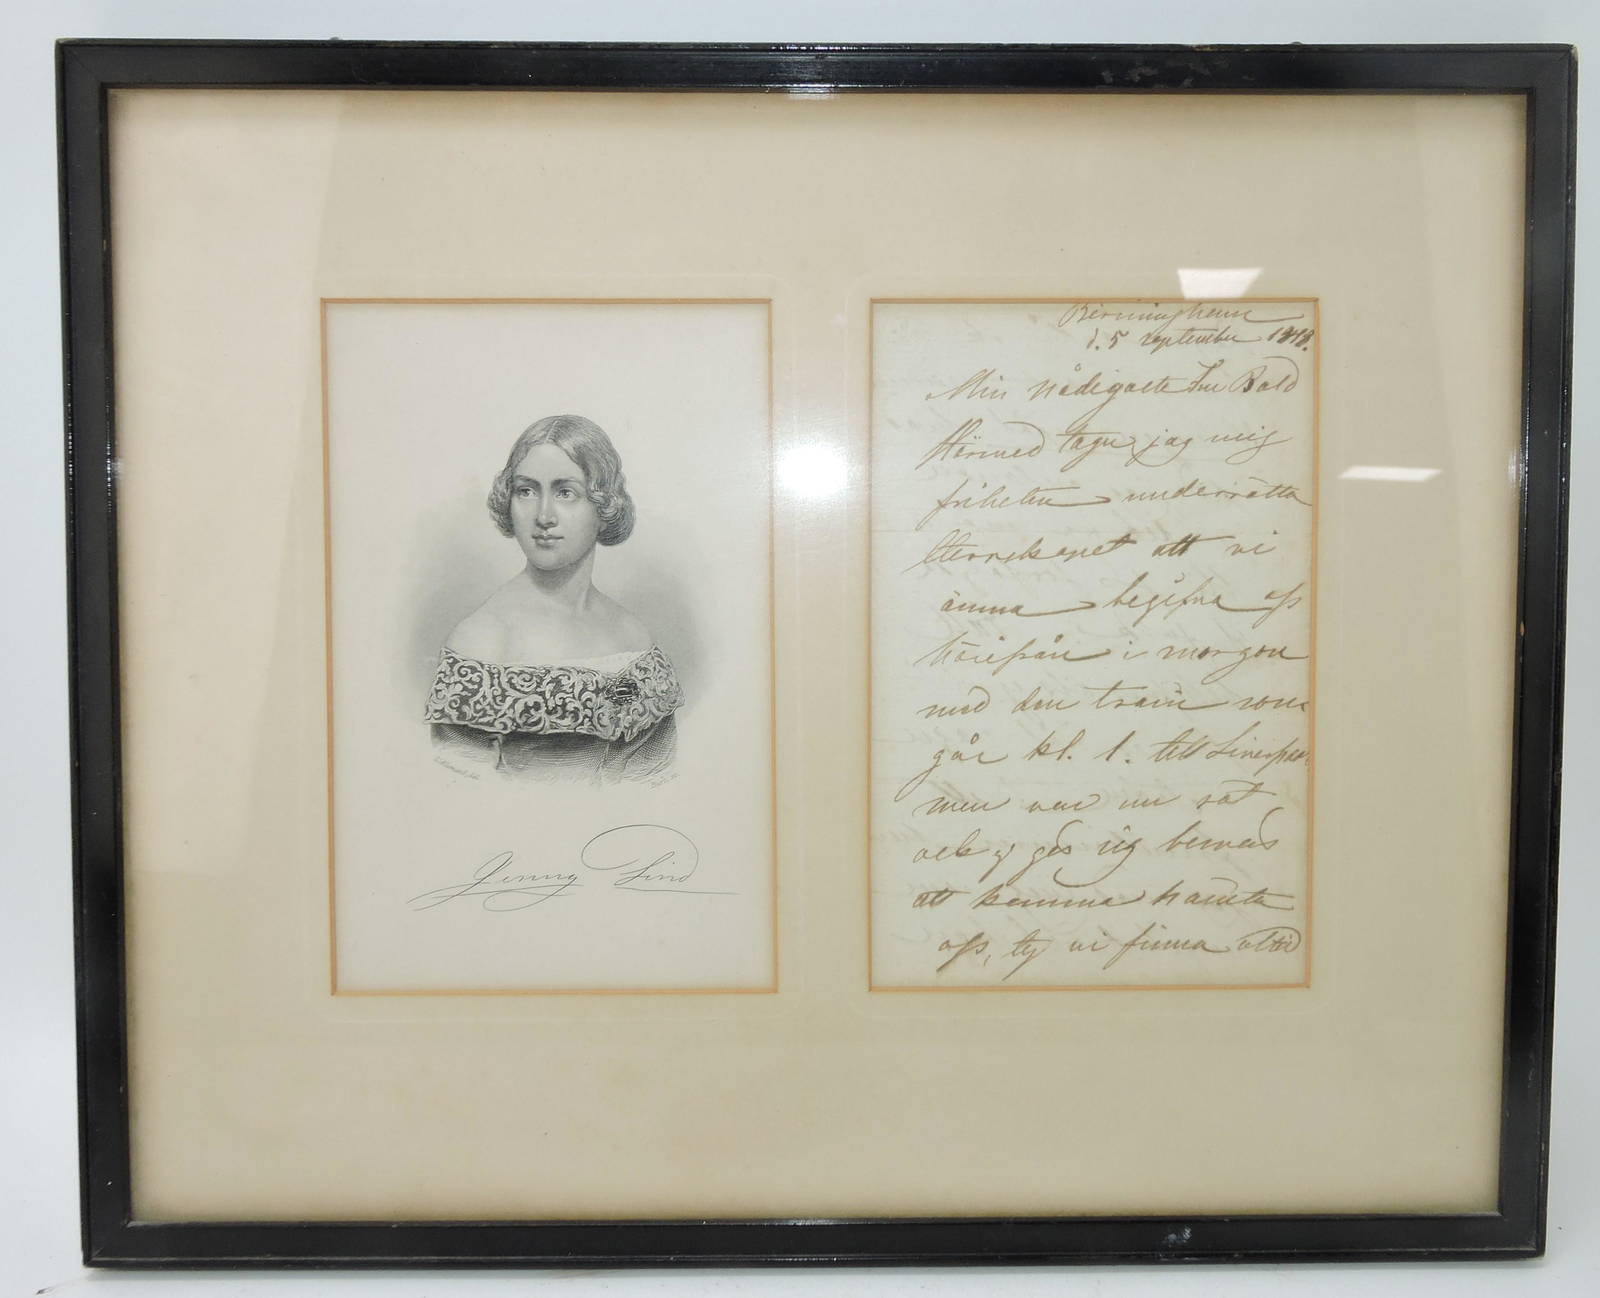 Jenny Lind
Birmingham
d. 5 september 1848.
Min nådigaste Fru Bald
Härmed tager jag mig
friheten underrätta
Herrskapet att vi
ämna begifva oss
härifrån i morgon
med den train som
går kl. 1. till Liverpool
men var nu söt
och gör sig besvär
att komma hämta
oss, ty vi finna alltid